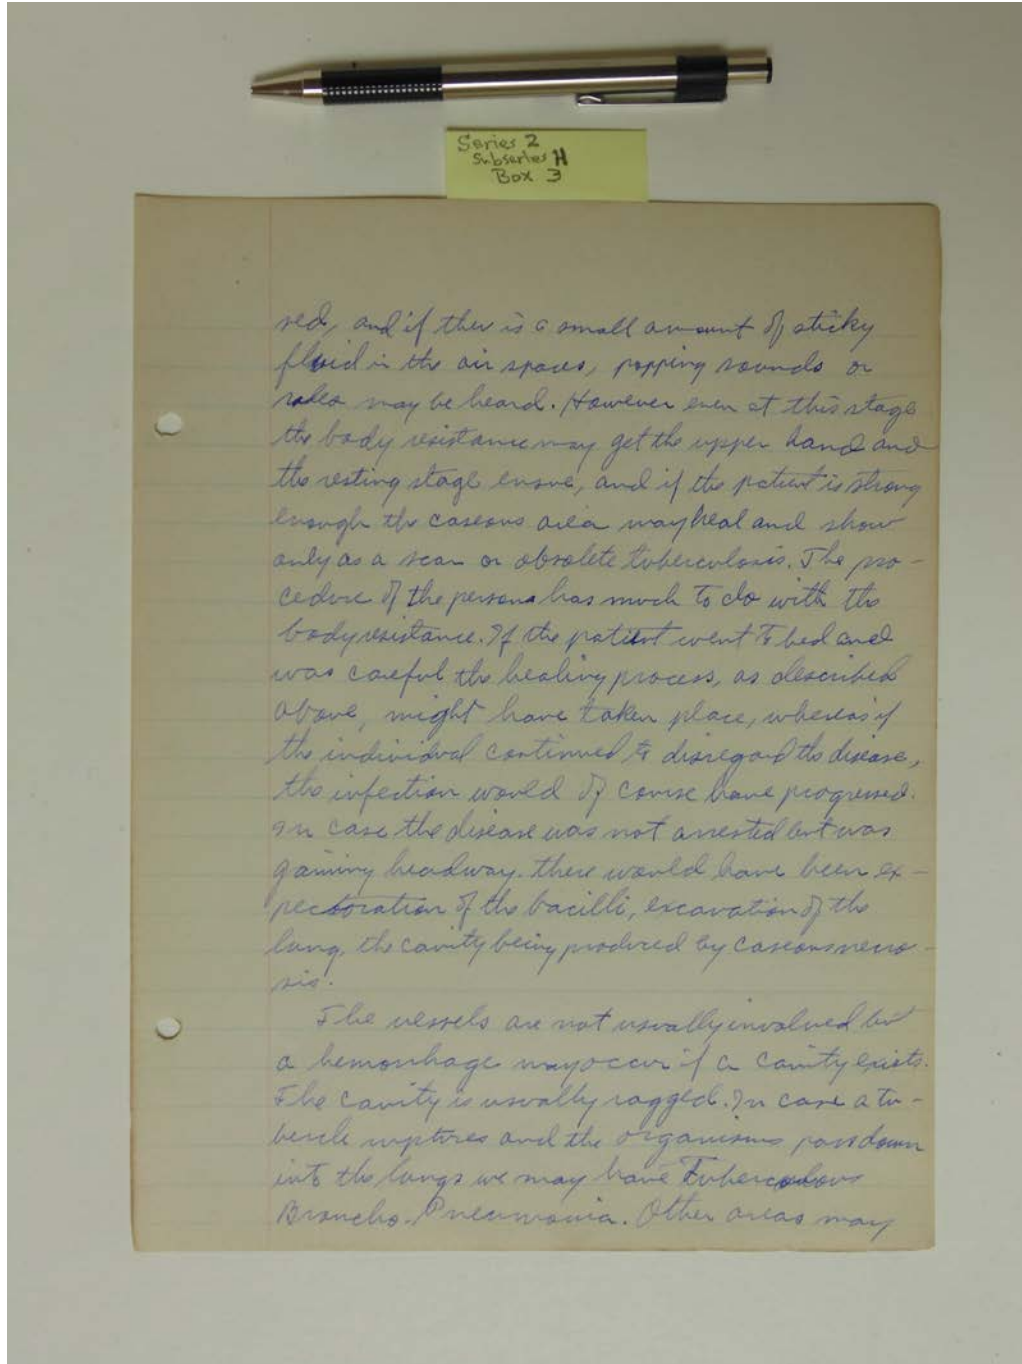 Series 2
Subseries H
Box 3
sed, and if ther is a small amount of sticky
fluid in the air spaces, popping sounds or
rales may be heard. However even at this stage
the body resistance may get the upper hand and
the resting stage ensue, and if the patient is strong
enough the caseous area may heal and show
only as a scar or obsolete tuberculosis. The pro-
cedure of the persona has much to do with the
body resistance. If the patient went to bed and
was careful the healing process, as described
above, might have taken place, whereas if
the individual continued to disregard the disease,
the infection would of course have progressed.
In case the disease was not arrested but was
gaining headway there would have been ex-
pectoration of the bacilli, excavation of the
lung, the cavity being produced by caseous necro-
sis.
The vessels are not usually involved but
a hemorrhage may occur if a cavity exists.
The cavity is usually ragged. In case a tu-
bercle ruptures and the organisms pass down
into the lungs we may have Tuberculous
Broncho-Pneumonia. Other areas may